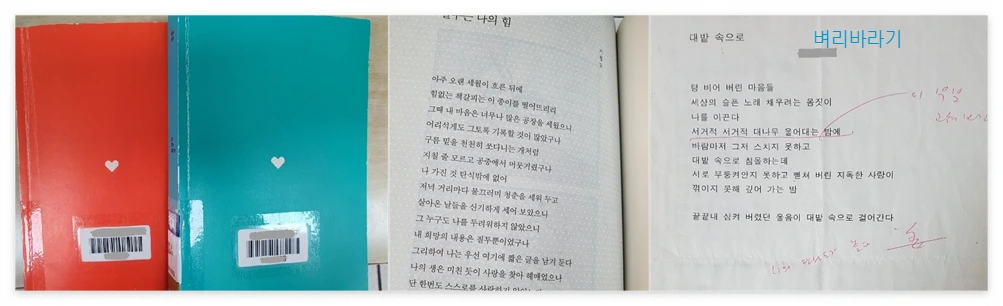 질투는 나의 힘
아주 오랜 세월이 흐른 뒤에
힘없는 책갈피는 이 종이를 떨어뜨리리
그때 내 마음은 너무나 많은 공장을 세웠으니
어리석게도 그토록 기록할 것이 많았구나
구름 밑을 천천히 쏘다니는 개처럼
지칠 줄 모르고 공중에서 머뭇거렸구나
나 가진 것 탄식밖에 없어
저녁 거리마다 물끄러미 청춘을 세워 두고
살아온 날들을 신기하게 세어 보았으니
그 누구도 나를 두려워하지 않았으니
내 희망의 내용은 질투뿐이었구나
그리하여 나는 우선 여기에 짧은 글을 남겨 둔다
나의 생은 미친 듯이 사랑을 찾아 헤매었으나
단 한번도 스스로를 사랑하지 않았노라
대밭 속으로
벼리바라기
텅 비어 버린 마음들
세상의 슬픈 노래 채우려는 몸짓이
나를 이끈다
서거적 서거적 대나무 울어대는 밤에
바람마저 그저 스치지 못하고
대밭 속으로 침몰하는데
서로 부둥켜안지 못하고 뻗쳐 버린 지독한 사랑이
꺾이지 못해 깊어 가는 밤
끝끝내 삼켜 버렸던 울음이 대밭 속으로 걸어간다